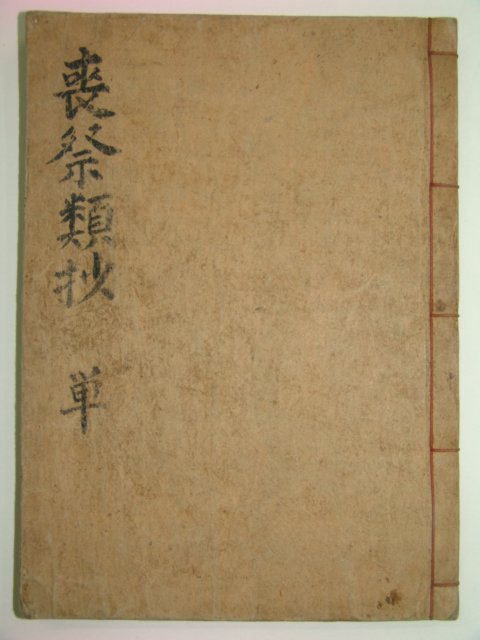 喪祭類抄 単